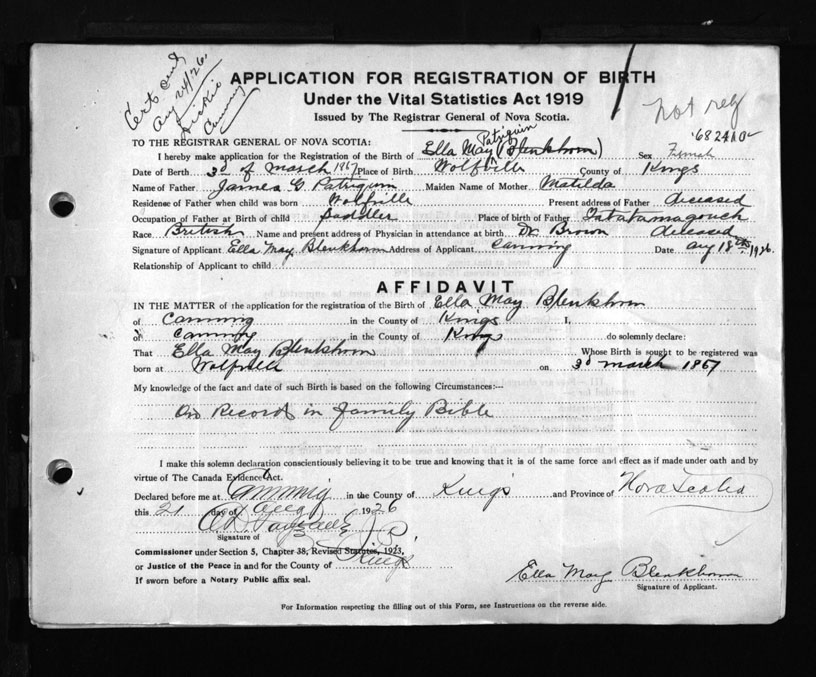 Cert sent
Aug 24/26.
Canning
APPLICATION FOR REGISTRATION OF BIRTH
Under the Vital Statistics Act 1919
Issued by The Registrar General of Nova Scotia.
not reg
TO THE REGISTRAR GENERAL OF NOVA SCOTIA:
Patriquin
I hereby make application for the Registration of the Birth of Ella May (Blenkhorn) Sex Female
Date of Birth 3d of March Place of Birth Wolfville County of Kings
Name of Father James G. Patriquin Maiden Name of Mother Matilda
Residence of Father when child was born Wolfville Present address of Father deceased
Occupation of Father at Birth of child Saddler Place of Birth of Father Tatatamagouch
Race British Name and present address of Physician in attendance at birth Dr Brown deceased
Signature of Applicant Ella May Blenkhorn Address of Applicant Canning Date Aug 18th 1926.
Relationship of Applicant to child
AFFIDAVIT
IN THE MATTER of the application for the registration of the Birth of Ella May Blenkhorn
of Canning in the County of Kings I,
of Canning in the County of Kings do solemnly declare:
That Ella May Blenkhorn Whose Birth is sought to be registered was
born at Wolfville on 3d March 1867
My knowledge of the fact and date of such Birth is based on the following Circumstances:—
Record in Family Bible
I make this solemn declaration conscientiously believing it to be true and knowing that it is of the same force and effect as if made under oath and by
virtue of The Canada Evidence Act.
Declared before me at Canning in the County of Kings and Province of Nova Scotia
this 21 day of Aug 1926
J.P.
Signature of
Commissioner under Section 5, Chapter 38, Revised Statutes, 1923,
or Justice of the Peace in and for the County of Kings
If sworn before a Notary Public affix seal.
Ella May Blenkhorn
Signature of Applicant.
For Information respecting the filling out of this Form, see Instructions on the reverse side.